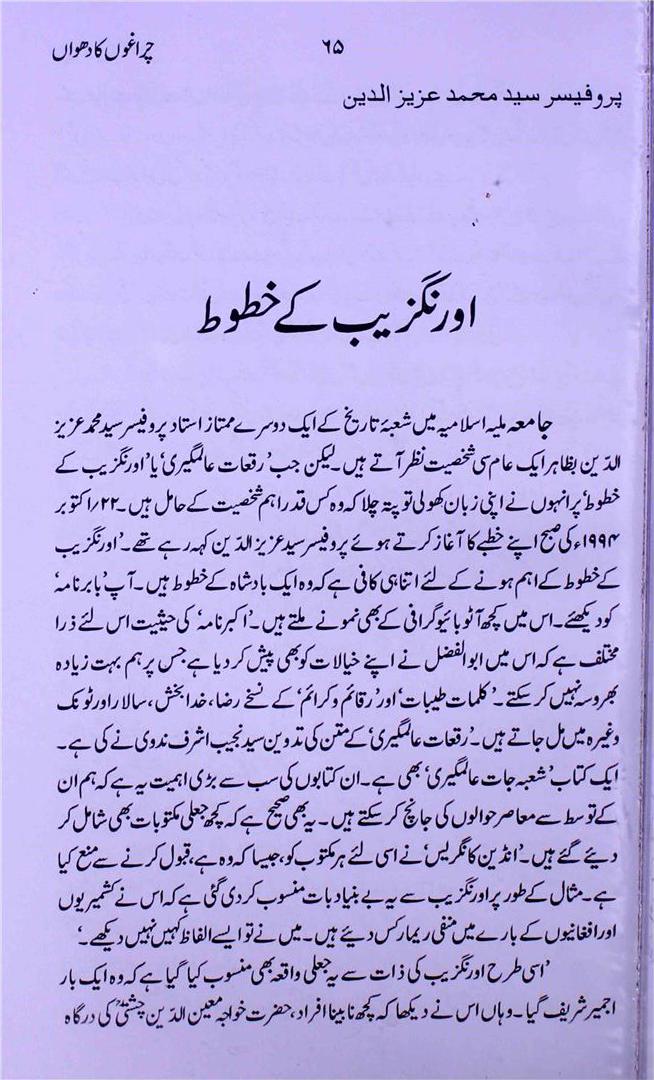 چراغوں کا دھواں
۶۵
پروفیسر سید محمد عزیز الدین
اورنگزیب کے خطوط
جامعہ ملیہ اسلامیہ میں شعبۂ تاریخ کے ایک دوسرے ممتاز استاد پروفیسر سید محمد عزیز
الدّین بظاہر ایک عام سی شخصیت نظر آتے ہیں۔ لیکن جب ’رقعات عالمگیری‘ یا ’اورنگزیب کے
خطوط‘ پر انہوں نے اپنی زبان کھولی تو پتہ چلا کہ وہ کس قدر اہم شخصیت کے حامل ہیں۔ ۲۲/اکتوبر
۱۹۹۴ء کی صبح اپنے خطبے کا آغاز کرتے ہوئے پروفیسر سید عزیز الدّین کہہ رہے تھے۔ ’اورنگزیب
کے خطوط کے اہم ہونے کے لئے اتنا ہی کافی ہے کہ وہ ایک بادشاہ کے خطوط ہیں۔ آپ ’بابر نامہ‘
کو دیکھئے۔ اس میں کچھ آٹو بائیو گرافی کے بھی نمونے ملتے ہیں۔ ’اکبر نامہ‘ کی حیثیت اس لئے ذرا
مختلف ہے کہ اس میں ابوالفضل نے اپنے خیالات کو بھی پیش کر دیا ہے جس پر ہم بہت زیادہ
بھروسہ نہیں کر سکتے۔ ’کلمات طیبات‘ اور ’رقائم و کرائم‘ کے نسخے رضا، خدا بخش، سالار اور ٹونک
وغیرہ میں مل جاتے ہیں۔ ’رقعات عالمگیری‘ کے متن کی تدوین سید نجیب اشرف ندوی نے کی ہے۔
ایک کتاب ’شعبہ جات عالمگیری‘ بھی ہے۔ ان کتابوں کی سب سے بڑی اہمیت یہ ہے کہ ہم ان
کے توسط سے معاصر حوالوں کی جانچ کر سکتے ہیں۔ یہ بھی صحیح ہے کہ کچھ جعلی مکتوبات بھی شامل کر
دیئے گئے ہیں۔ ’انڈین کانگریس‘ نے اسی لئے ہر مکتوب کو، جیسا کہ وہ ہے، قبول کرنے سے منع کیا
ہے۔ مثال کے طور پر اورنگزیب سے یہ بے بنیاد بات منسوب کر دی گئی ہے کہ اس نے کشمیریوں
اور افغانیوں کے بارے میں منفی ریمارکس دیئے ہیں۔ میں نے تو ایسے الفاظ کہیں نہیں دیکھے۔‘
’اسی طرح اورنگزیب کی ذات سے یہ جعلی واقعہ بھی منسوب کیا گیا ہے کہ وہ ایک بار
اجمیر شریف گیا۔ وہاں اس نے دیکھا کہ کچھ نابینا افراد، حضرت خواجہ معین الدّین چشتیؒ کی درگاہ